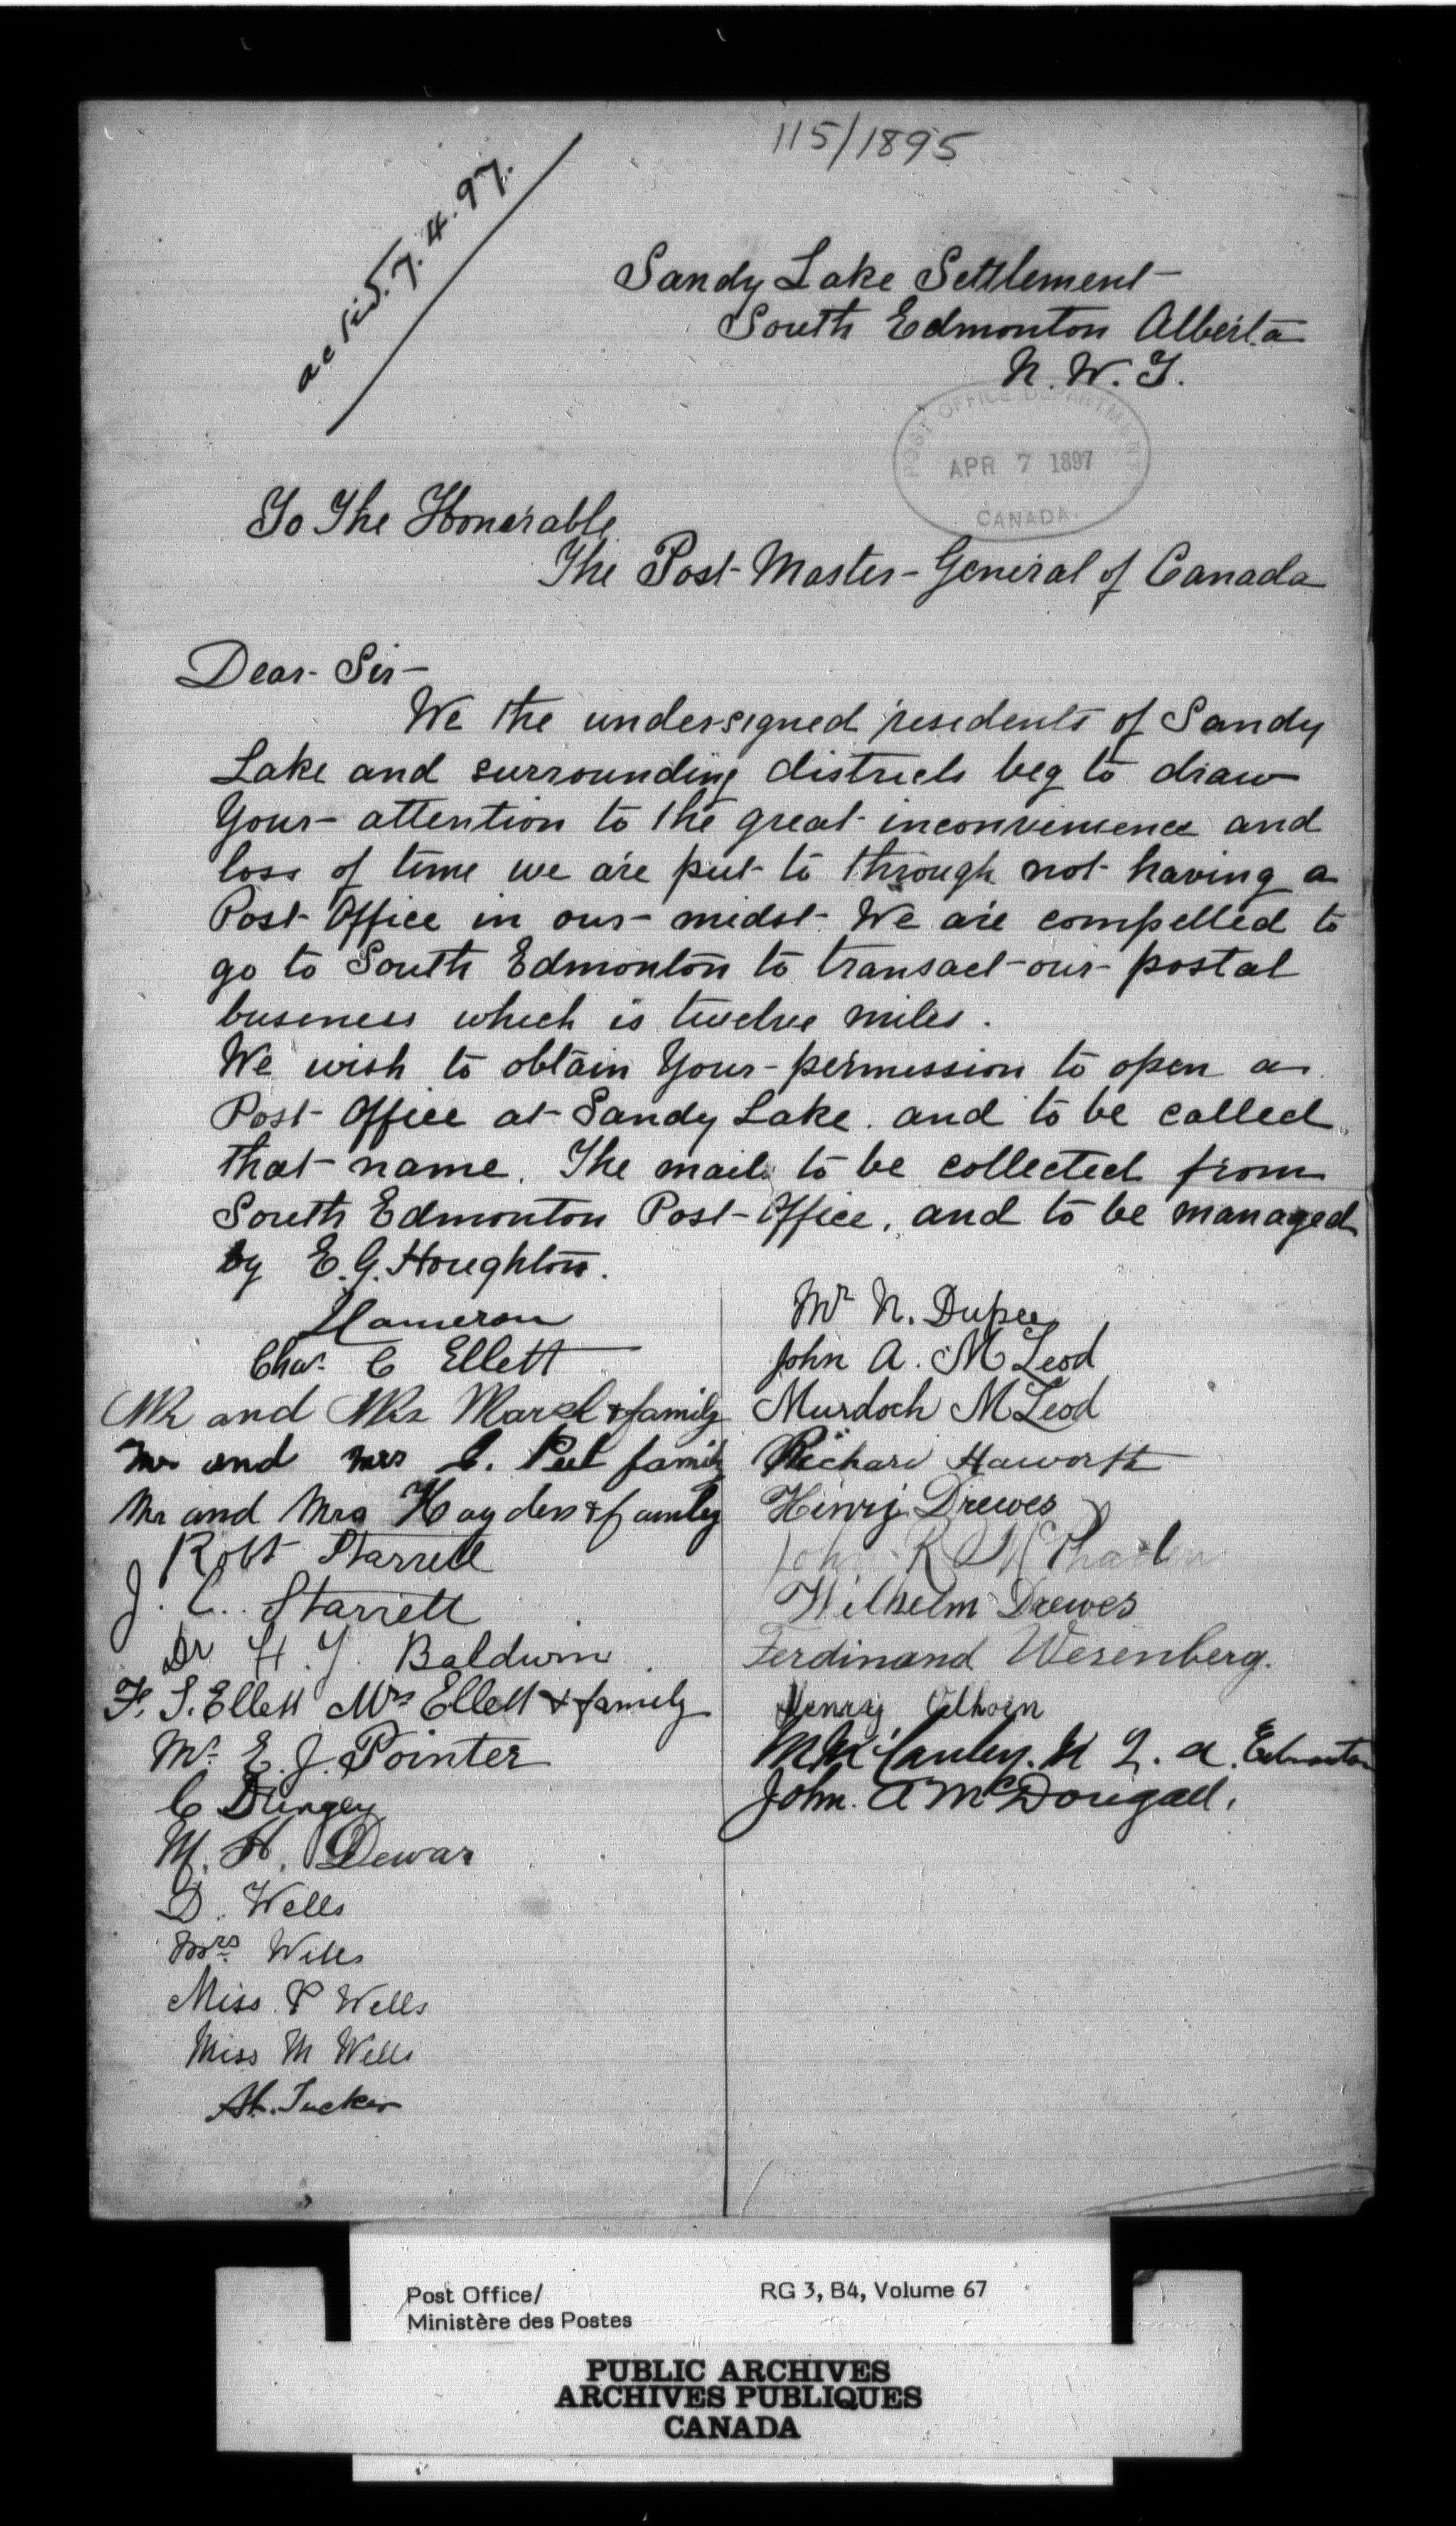 115/1895
7.4.97.
Sandy Lake Settlement
South Edmonton Alberta
N. W. T.
POST OFFICE DEPARTMENT
APR 7 1897
CANADA.
To The Honorable
The Post-Master-General of Canada
Dear Sir
We the undersigned residents of Sandy
Lake and surrounding districts beg to draw
Your attention to the great inconvenience and
loss of time we are put to through not having a
Post Office in our midst. We are compelled to
go to South Edmonton to transact our postal
business which is twelve miles.
We wish to obtain Your permission to open a
Post Office at Sandy Lake. and to be called
that name. The mail to be collected from
South Edmonton Post-Office, and to be managed
by E. G. Houghton.
Chas. C Ellett
Mr and Mrs & family
Mr and Mrs Peel family
Mr and Mrs Hayden & family
Robt Starrett
J. C. Starrett
Dr H. Y. Baldwin
F. S. Ellett Mrs Ellett & family
Mr. E. J. Pointer
C Dungey
M. H. Dewar
D. Wells
Mrs. Wells
Miss P Wells
Miss M Wells
Tucker
Mr N. Dupee
John A. McLeod
Murdoch McLeod
Richard Haworth
Henry Drewes
John R
Wilhelm Drewes
Ferdinand Wesenberg.
Henry
McCauley. M L. A. Edmonton
John. A McDougall.
Post Office/
Ministère des Postes
RG 3, B4, Volume 67
PUBLIC ARCHIVES
ARCHIVES PUBLIQUES
CANADA